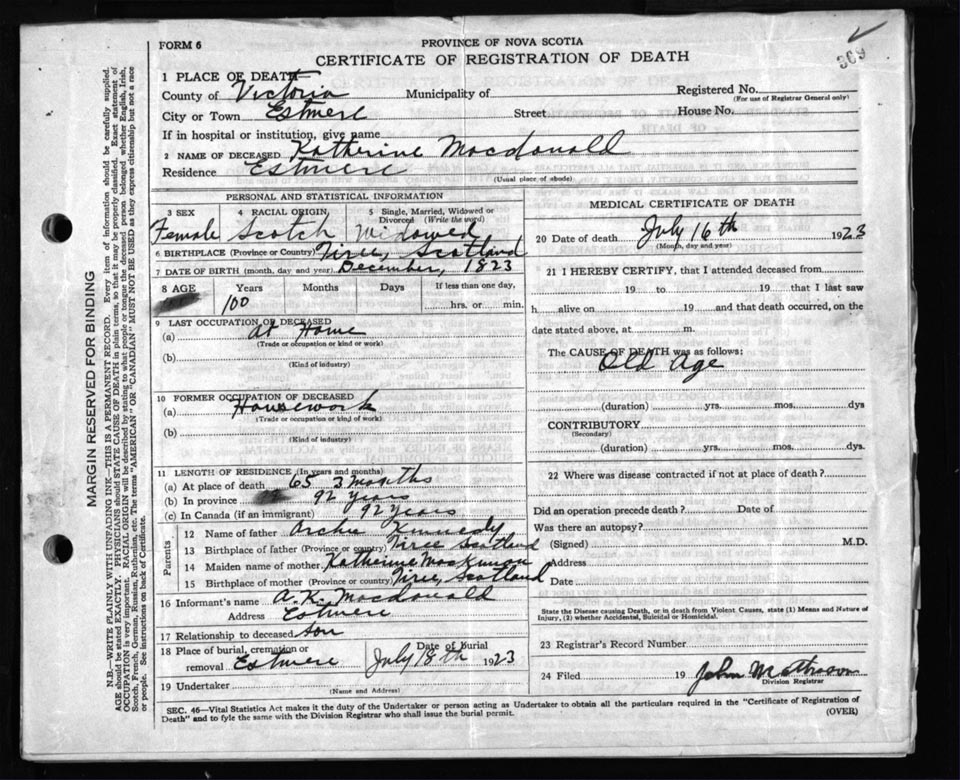 309
FORM 6
PROVINCE OF NOVA SCOTIA
CERTIFICATE OF REGISTRATION OF DEATH
1 PLACE OF DEATH
County of Victoria Municipality of Registered No.
(For use of Registrar General only)
City or Town Estmere Street House No.
If in hospital or institution, give name
2 NAME OF DECEASED Katherine Macdonald
Residence Estmere
(Usual place of abode)
PERSONAL AND STATISTICAL INFORMATION
3 SEX 4 RACIAL ORIGIN 5 Single, Married, Widowed or Divorced (Write the word)
Female Scotch Widowed
6 BIRTHPLACE (Province or Country) Tiree, Scotland
7 DATE OF BIRTH (month, day and year) December, 1823
8 AGE Years Months Days If less than one day,
100 hrs. or min.
9 LAST OCCUPATION OF DECEASED
(a) At Home
(Trade or occupation or kind or work)
(b)
(Kind of industry)
10 FORMER OCCUPATION OF DECEASED
(a) Housework
(Trade or occupation or kind of work)
(b)
(Kind of industry)
11 LENGTH OF RESIDENCE (In years and months)
(a) At place of death 65 3 months
(b) In province 92 years
(c) In Canada (if an immigrant) 92 years
Parents
12 Name of father Archie Kennedy
13 Birthplace of father (Province or country) Tiree Scotland
14 Maiden name of mother Katherine MacKinnon
15 Birthplace of mother (Province or country) Tiree, Scotland
16 Informant's name A. K. Macdonald
Address Estmere
17 Relationship to deceased son
18 Place of burial, cremation or removal Estmere Date of Burial July 18th 1923
19 Undertaker
(Name and Address)
MEDICAL CERTIFICATE OF DEATH
20 Date of death July 16th 1923
(Month, day and year)
21 I HEREBY CERTIFY, that I attended deceased from
19 to 19 that I last saw
h alive on 19 and that death occurred, on the
date stated above, at m.
The CAUSE OF DEATH was as follows:
Old Age
(duration) yrs. mos. dys
CONTRIBUTORY
(Secondary)
(duration) yrs. mos. dys.
22 Where was disease contracted if not at place of death?
Did an operation precede death? Date of
Was there an autopsy?
(Signed) M.D.
Address
Date
State the Disease causing Death, or in death from Violent Causes, state (1) Means and Nature of
Injury, (2) whether Accidental, Suicidal or Homicidal.
23 Registrar's Record Number
24 Filed 19 John Matheson
Division Registrar
SEC. 46—Vital Statistics Act makes it the duty of the Undertaker or person acting as Undertaker to obtain all the particulars required in the "Certificate of Registration of
Death" and to fyle the same with the Division Registrar who shall issue the burial permit.
(OVER)
MARGIN RESERVED FOR BINDING
N.B.—WRITE PLAINLY WITH UNFADING INK—THIS IS A PERMANENT RECORD. Every item of information should be carefully supplied.
AGE should be stated EXACTLY. PHYSICIANS should STATE CAUSE OF DEATH in plain terms, so that it may be properly classified. Exact statement of
OCCUPATION is very important. RACIAL ORIGIN will be described by stating to what people or tongue the deceased person belonged whether English, Irish,
Scotch, French, German, Russian, Ruthenian, etc. The terms "AMERICAN" OR "CANADIAN" MUST NOT BE USED as they express citizenship but not a race
or people. See instructions on back of Certificate.